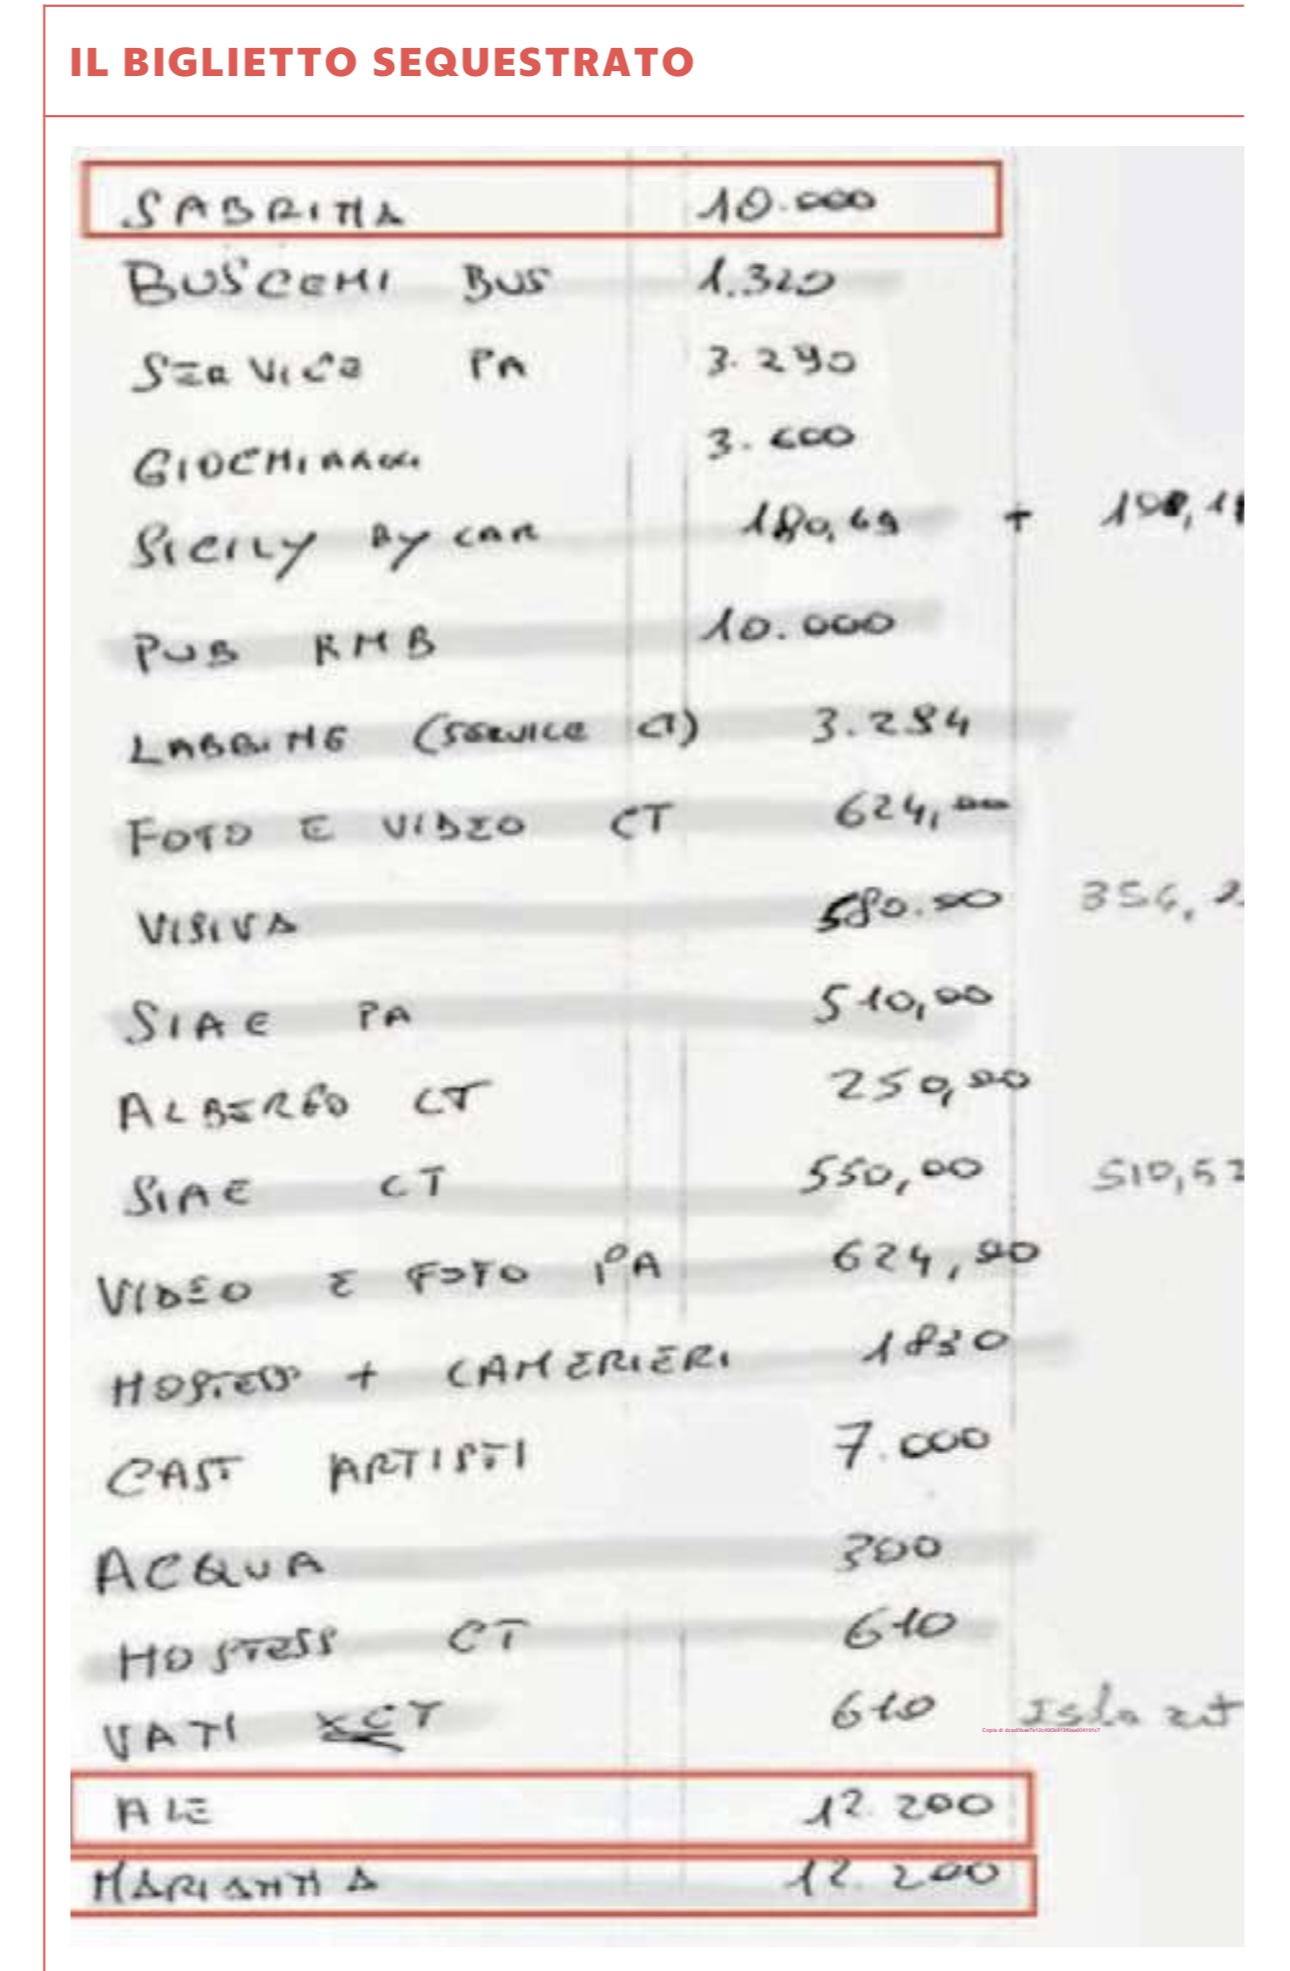 IL BIGLIETTO SEQUESTRATO
SABRINA 10.000
BUSCEMI BUS 1.320
SERVICE PA 3.290
GIOCHIAMO 3.600
SICILY BY CAR 180,69 +
PUB RMB 10.000
LABBING (SERVICE CT) 3.294
FOTO E VIDEO CT 624,00
VISIVA 580.00
SIAE PA 510,00
ALBERGO CT 250,00
SIAE CT 550,00 510,52
VIDEO E FOTO PA 624,00
HOSTESS + CAMERIERI 1830
CAST ARTISTI 7.000
ACQUA 300
HOSTESS CT 610
VATI CT 610
ALE 12.200
MARIANNA 12.200